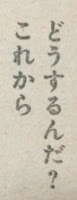 どうするんだ？
これから